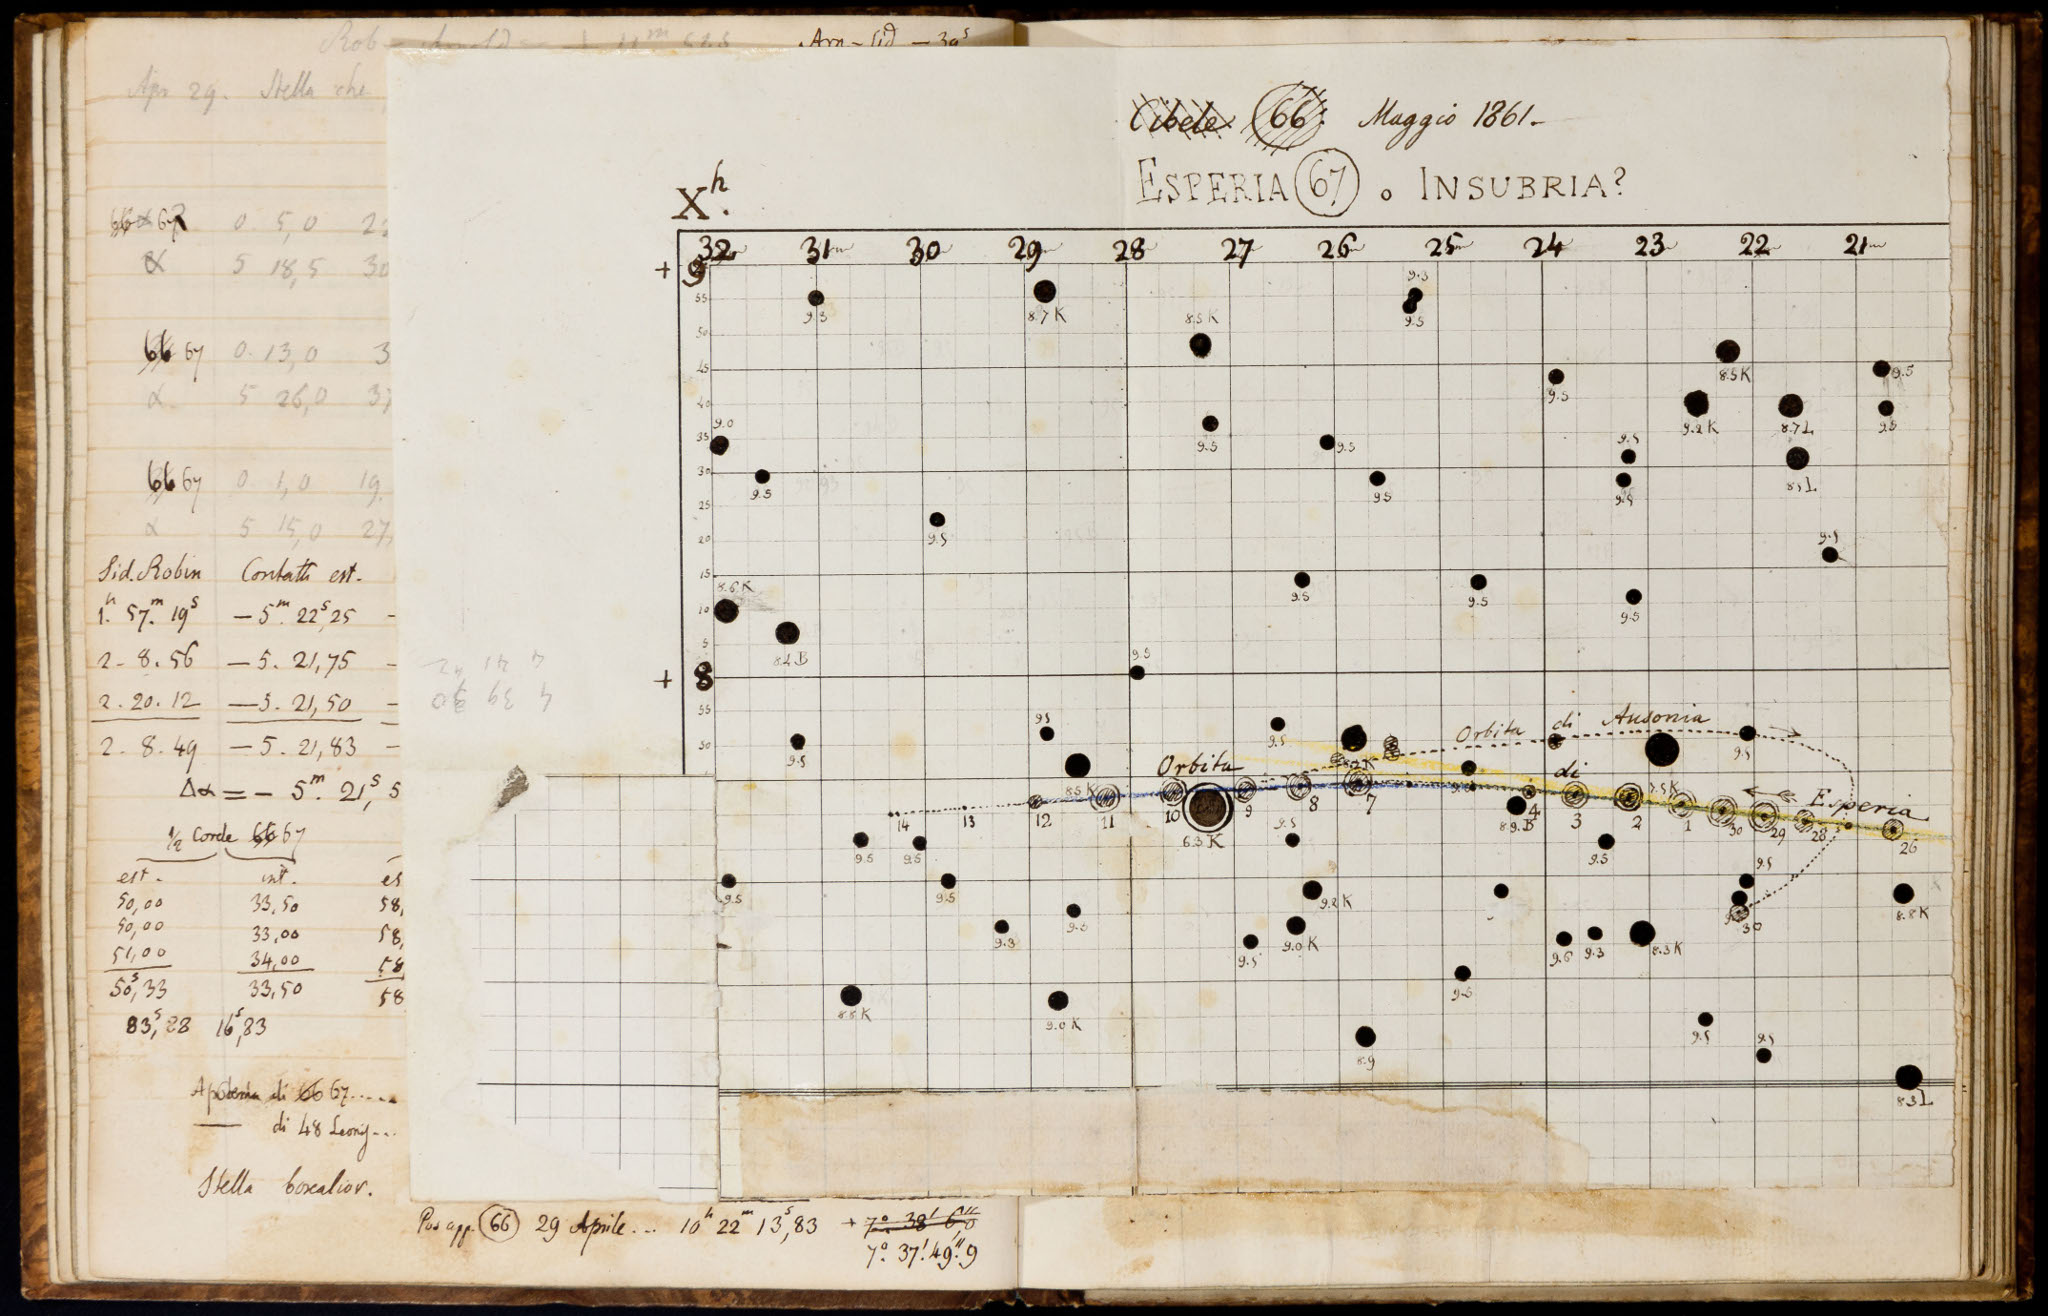 Apr 29. Stella che
67 0 5,0
α 5 18,5 30
66 67 0. 13,0 3
α 5 26,0 37
66 67 0. 1,0 19.
α 5 15,0 27,
Sid. Robin Contatti est.
1.h 57.m 19s — 5m. 22s,25 –
2 - 8. 56 — 5. 21,75 –
2. 20. 12 — 5. 21,50 –
2. 8. 49 — 5. 21,83 —
Δα = — 5m. 21s, 5
½ corde 66 67
est. int. es
50,00 33,50 58,
50,00 33,00 58,
51,00 34,00 58
50s,33 33,50 58
83s,88 16s,83
di 66 67.....
— di 48 Leonis...
Stella borealior.
Cibele 66. Maggio 1861.
ESPERIA 67 o INSUBRIA?
Xh.
32m 31m 30m 29m 28m 27m 26m 25m 24m 23m 22m 21m
+ 9
9.3
55
9.3
8.7 K
9.5
50
8.5 K
45
8.5 K
9.5
9.5
40
9.2 K
8.7 L
9.0
35
9.5
9.5
9.5
30
9.5
9.5
9.5
8.5 L
25
20
9.5
9.5
15
8.6 K
9.5
9.5
9.5
10
5
8.2 B
9.5
+ 8
55
9.5
Orbita di Ausonia
50
9.5
9.5
9.5
Orbita di Esperia
8.5 K
7.5 K
14 13 12 11 10 9 8 7 4 3 2 1 30 29 28 26
6.3 K
9.5
8.9.B
9.5
9.5
9.5
9.5
9.5
9.5
9.2 K
8.8 K
30
9.3
9.3
9.5
9.0 K
9.6
9.3
8.3 K
8.8 K
9.0 K
8.9
9.5
9.5
8.3 L
Pos app. 66 29 Aprile... 10h 22m 13s,83 + 7°. 38' 6",0
7°. 37'. 49".9